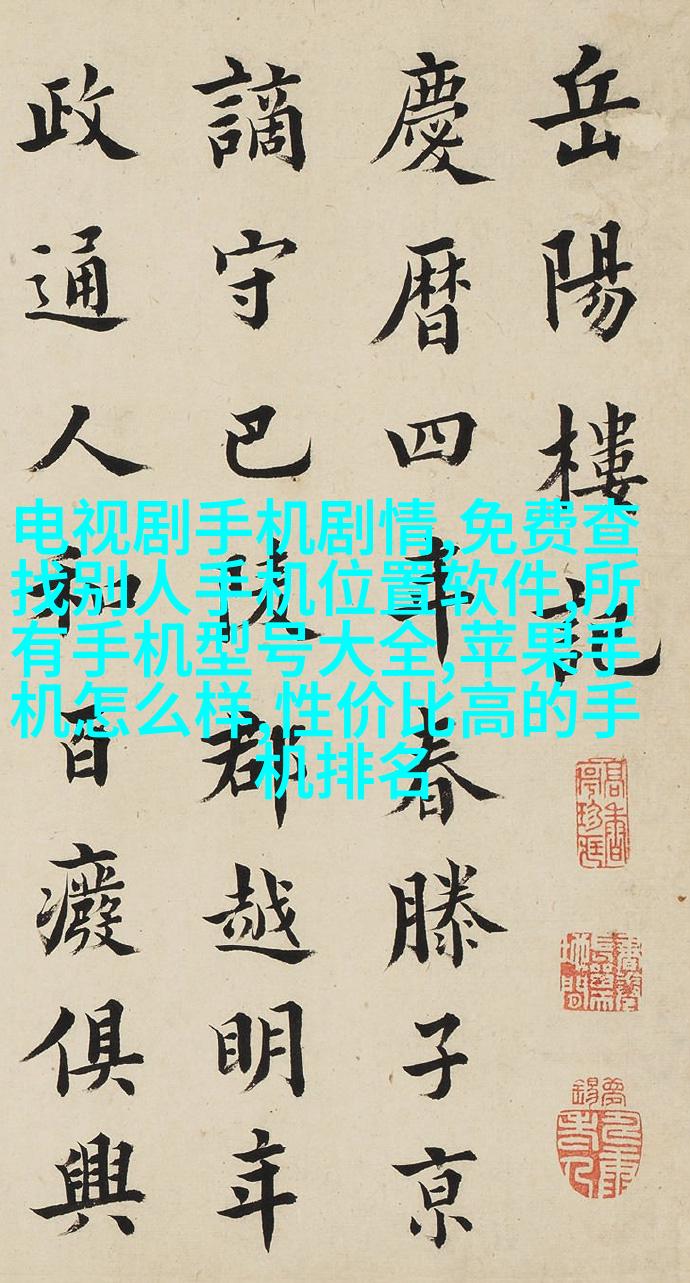 岳陽樓記
慶曆四年春滕子京
謫守巴陵郡越明年
政通人和百癈俱興
电视剧手机剧情,免费查
找别人手机位置软件,所
有手机型号大全,苹果手
机怎么样,性价比高的手
机排名